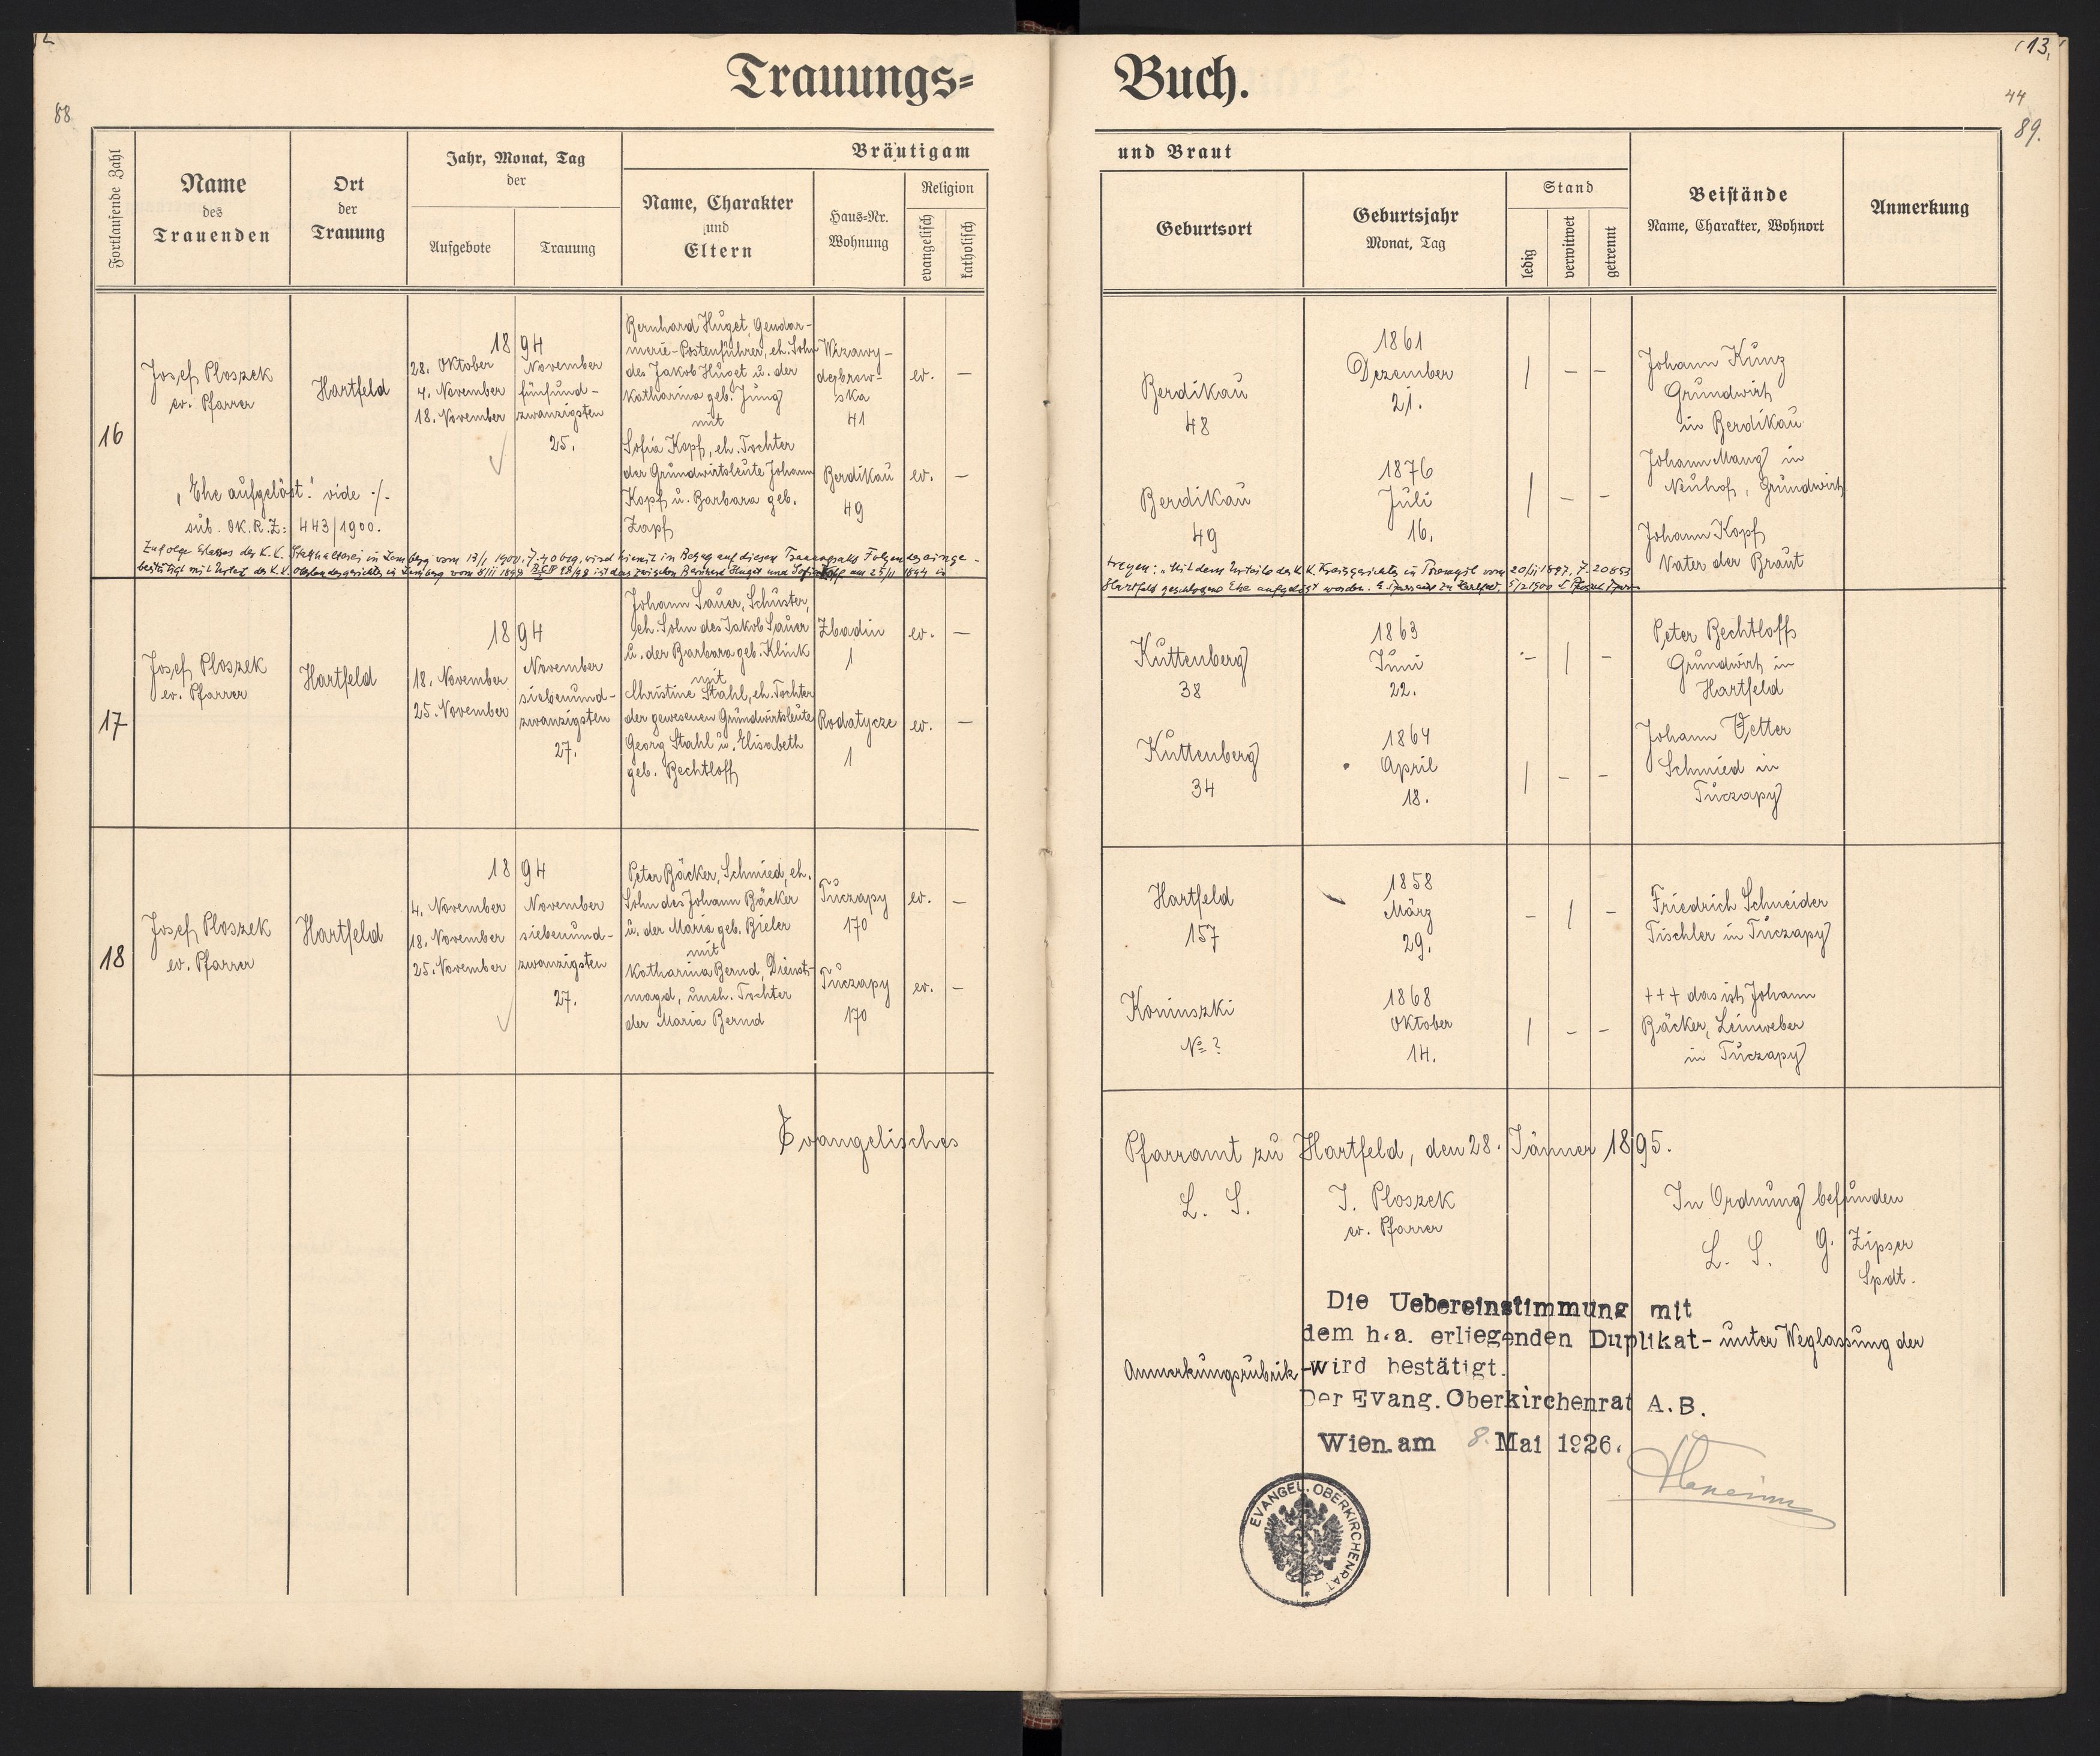 Trauungs-
Buch.
12
13.
88
44
89.
Fortlaufende Zahl
Name
des
Trauenden
Ort
der
Trauung
Jahr, Monat, Tag
der
Aufgebote
Trauung
Bräutigam
Name, Charakter
und
Eltern
Haus-Nr.
Wohnung
Religion
evangelisch
katholisch
und Braut
Geburtsort
Geburtsjahr
Monat, Tag
Stand
ledig
verwitwet
getrennt
Beistände
Name, Charakter, Wohnort
Anmerkung
16
Josef Ploszek
ev. Pfarrer
Hartfeld
1894
28. Oktober
4. November
18. November
November
fünfund-
zwanzigsten
25.
Bernhard Huget, Gendar-
merie-Postenführer, eh. Sohn
des Jakob Huget u. der
Katharina geb. Jung
mit
Sofia Kopf, eh. Tochter
der Grundwirtsleute Johann
Kopf u. Barbara geb.
Zapf
Wizawy-
debrow-
ska
41
ev. –
Berdikau
49
ev. –
Berdikau
48
1861
Dezember
21.
/ – –
Berdikau
49
1876
Juli
16.
/ – –
Johann Kunz
Grundwirt
in Berdikau
Johann Mang in
Neuhof, Grundwirt
Johann Kopf
Vater der Braut
"Ehe aufgelöst." vide ./.
sub. OK.R.Z: 443/1900.
Zufolge Erlasses der K.K. Statthalterei in Lemberg vom 13/1 1900, wird hiemit in Bezug auf diesen Trauungsakt Folgendes einge-
bestätigt mit Urteil des K.K. Oberlandesgerichtes in Lemberg vom 1898 ist das zwischen Bernhard Huget und Sofia Kopf am 25/11 1894 in
tragen: Mit dem Urteile des K.K. Kreisgerichtes in Przemysl vom 20/11 1897, Z. 20853
Hartfeld geschlossene Ehe aufgelöst worden. 5/2 1900 J. Ploszek Pfarrer
17
Josef Ploszek
ev. Pfarrer
Hartfeld
1894
18. November
25. November
November
siebenund-
zwanzigsten
27.
Johann Sauer, Schuster,
eh. Sohn des Jakob Sauer
u. der Barbara geb. Klink
mit
Christine Stahl, eh. Tochter
der gewesenen Grundwirtsleute
Georg Stahl u. Elisabeth
geb. Bechtloff
Zbadin
1
ev. –
Rodatycze
1
ev. –
Kuttenberg
38
1863
Juni
22.
– / –
Kuttenberg
34
1864
April
18.
/ – –
Peter Bechtloff
Grundwirt in
Hartfeld
Johann Vetter
Schmied in
Tuczapy
18
Josef Ploszek
ev. Pfarrer
Hartfeld
1894
4. November
18. November
25. November
November
siebenund-
zwanzigsten
27.
Peter Bäcker, Schmied, eh.
Sohn des Johann Bäcker
u. der Maria geb. Bieler
mit
Katharina Bernd, Dienst-
magd, uneh. Tochter
der Maria Bernd
Tuczapy
170
ev. –
Tuczapy
170
ev. –
Hartfeld
157
1858
März
29.
– / –
Koninszki
No ?
1868
Oktober
14.
/ – –
Friedrich Schneider
Tischler in Tuczapy
+++ das ist Johann
Bäcker, Leinweber
in Tuczapy
Evangelisches
Pfarramt zu Hartfeld, den 28. Jänner 1895.
L. S.
J. Ploszek
ev. Pfarrer
In Ordnung befunden
L. S. G. Zipser
Spdt.
Die Uebereinstimmung mit
dem h.a. erliegenden Duplikat - unter Weglassung der
Anmerkungsrubrik - wird bestätigt.
Der Evang. Oberkirchenrat A.B.
Wien am 8. Mai 1926.
EVANGEL. OBERKIRCHENRAT